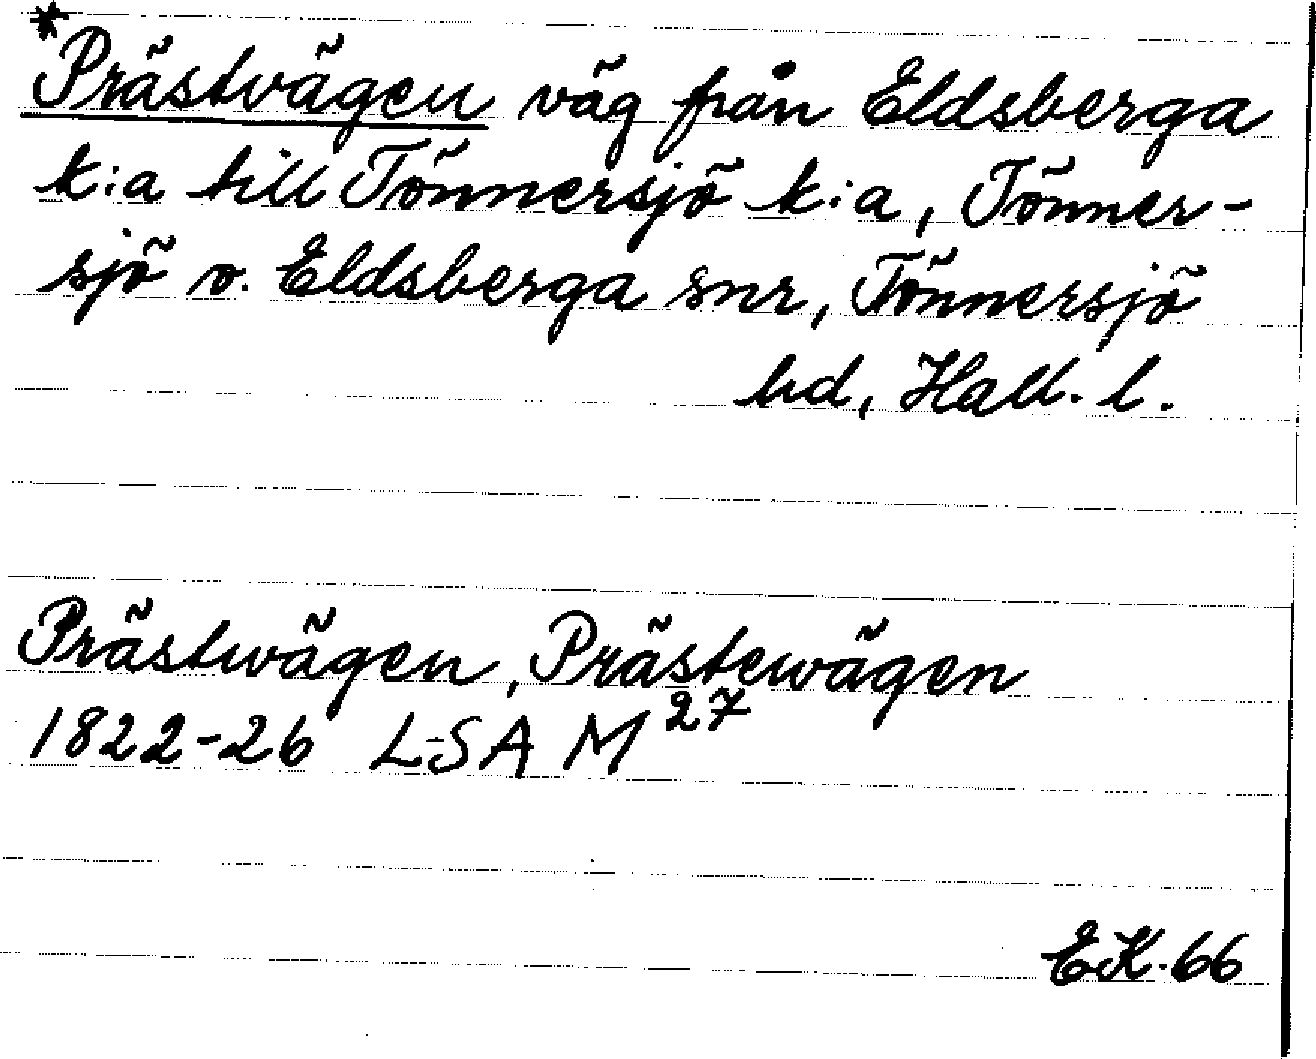 *Prästvägen väg från Eldsberga
k:a till Tönnersjö k:a, Tönner-
sjö o. Eldsberga snr, Tönnersjö
hd, Hall. l.
Prästwägen, Prästewägen
1822-26 LSA M27
EK.66